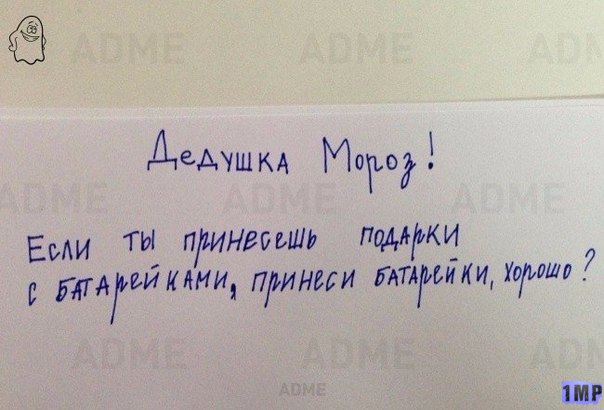 ADME ADME ADME
Дедушка Мороз!
ADME ADME ADME
Если ты принесешь подарки
с батарейками, принеси батарейки, хорошо?
ADME ADME ADME
ADME
1MP